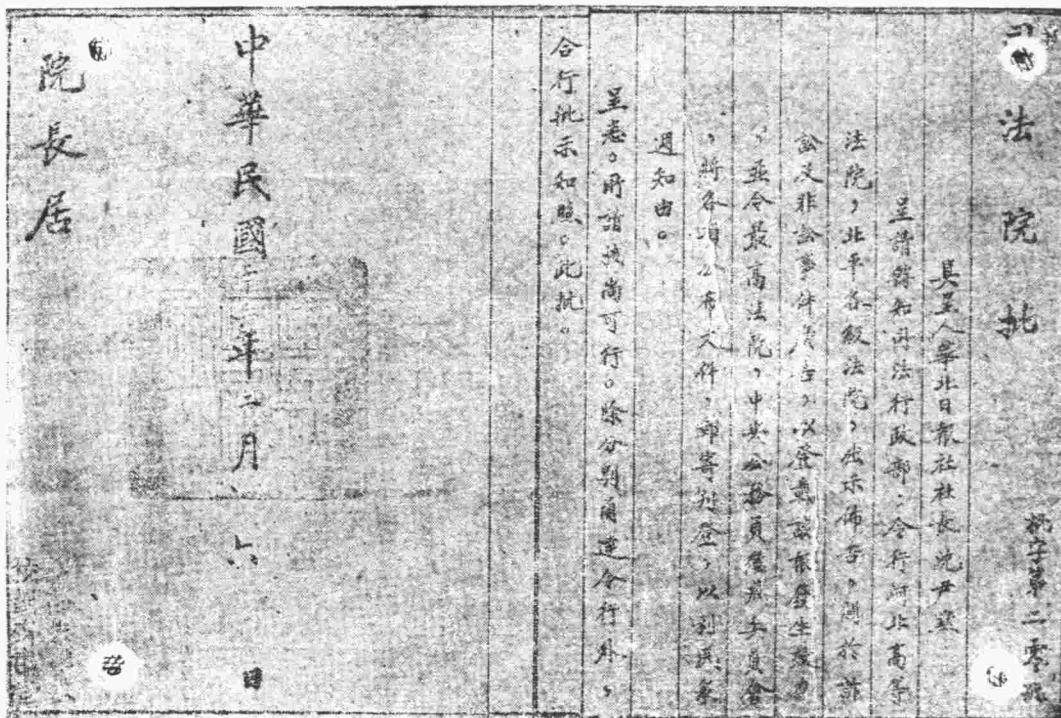 司法院批
批字第二零號
具呈人華北日報社社長沈尹默
呈請轉知司法行政部，令行河北高等
法院，北平各級法院，出示佈告，關於訴
訟及非訟事件廣告，以登載該報發生效力
，並令最高法院，中央公務員懲戒委員會
，將各項公布文件，郵寄刊登，以利
週知由。
呈悉。所請核尚可行。除分別函達令行外，
合行批示知照。此批。
中華民國二十二年二月六日
院長居